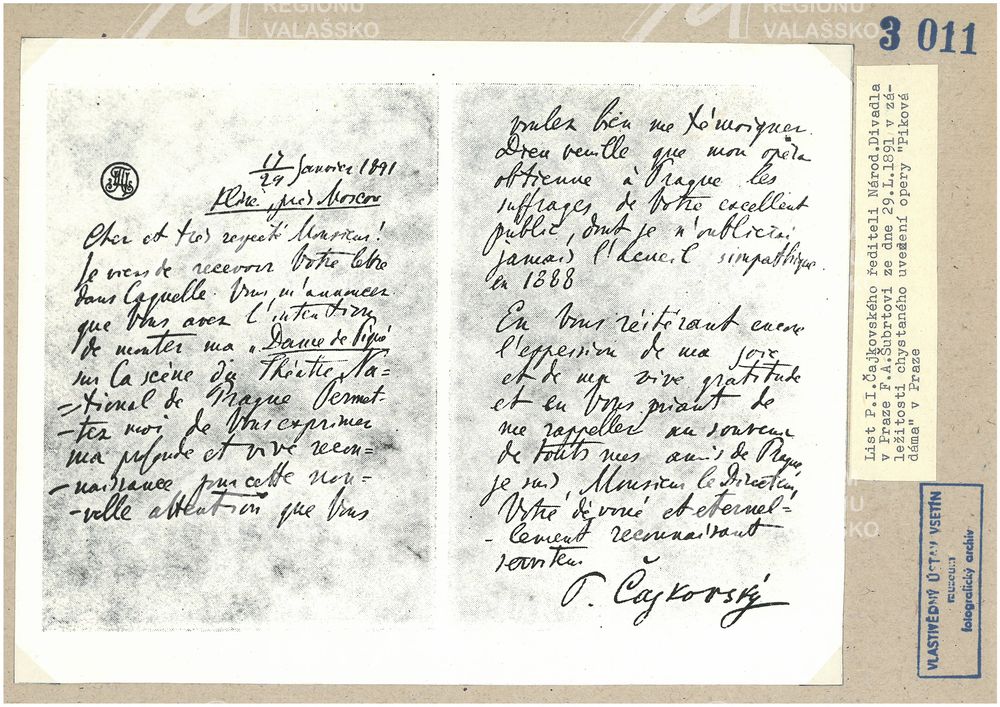 REGIONU
VALAŠSKO
REGIONU
VALAŠSKO
3 011
17/29 Janvier 1891
Klin, près Moscou
Cher et très respecté Monsieur!
Je viens de recevoir Votre lettre
dans laquelle Vous m'annoncez
que Vous avez l'intention
de monter ma „Dame de Pique
sur la scène du Théâtre Na=
=tional de Prague Permet-
-tez moi de Vous exprimer
ma profonde et vive recon=
-naissance pour cette nou-
-velle attention que Vous
voulez bien me témoigner.
Dieu veuille que mon opéra
obtienne à Prague les
suffrages de Votre excellent
public, dont je n'oublierai
jamais l'acueil simpathique
en 1888
En Vous réitérant encore
l'expession de ma joie
et de ma vive gratitude
et en Vous priant de
me rappeller au souvenir
de touts mes amis de Prague,
je suis, Monsieur le Directeur,
Votre dévoué et eternel=
-lement reconnaissant
serviteur
P. Čajkovský
List P.I.Čajkovského řediteli Národ.Divadla
v Praze F.A.Šubrtovi ze dne 29.I.1891 v zá-
ležitosti chystaného uvedení opery "Piková
dáma" v Praze
VLASTIVĚDNÝ ÚSTAV VSETÍN
muzeum
fotografický archiv